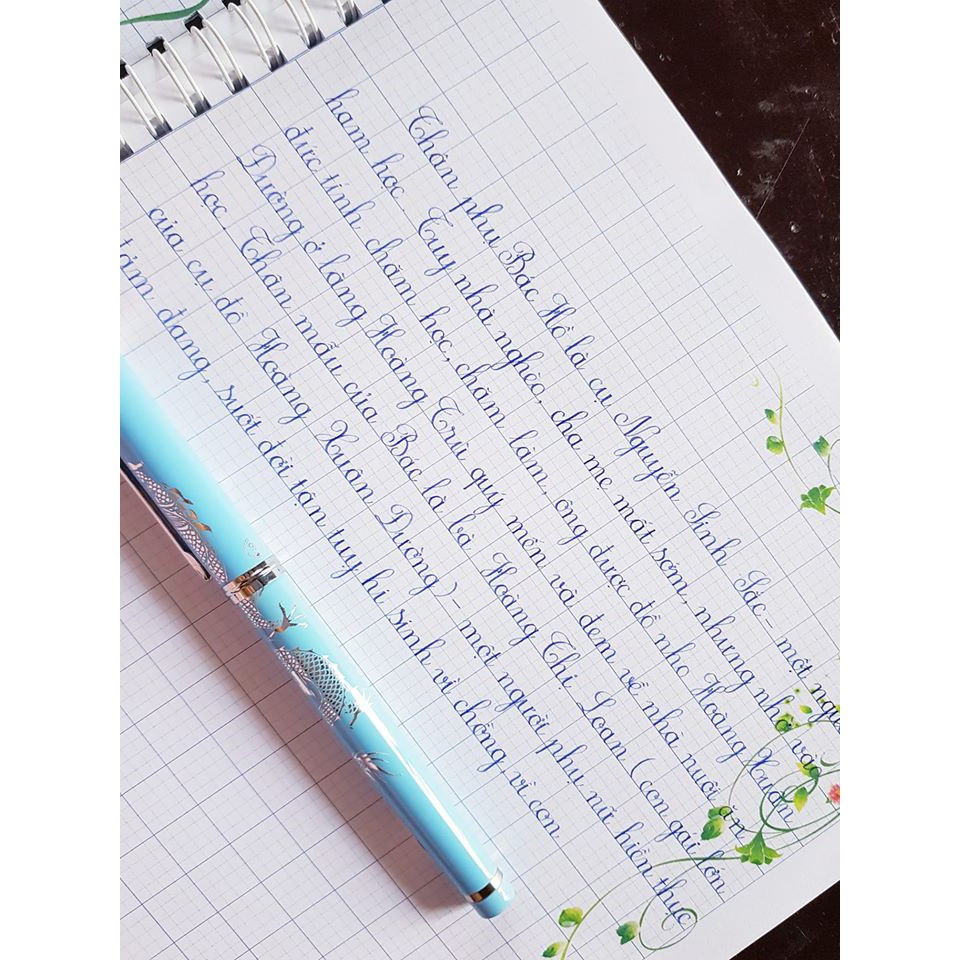 Thân phụ Bác Hồ là cụ Nguyễn Sinh Sắc - một
ham học. Tuy nhà nghèo, cha mẹ mất sớm, nhưng nhờ vào
đức tính chăm học, chăm làm, ông được đồ nho Hoàng Xuân
Đường ở làng Hoàng Trù quý mến và đem về nhà nuôi ăn
học. Thân mẫu của Bác là bà Hoàng Thị Loan (con gái lớn
của cụ đồ Hoàng Xuân Đường) - một người phụ nữ hiền thục
đảm đang, suốt đời tận tuy hi sinh vì chồng, vì con